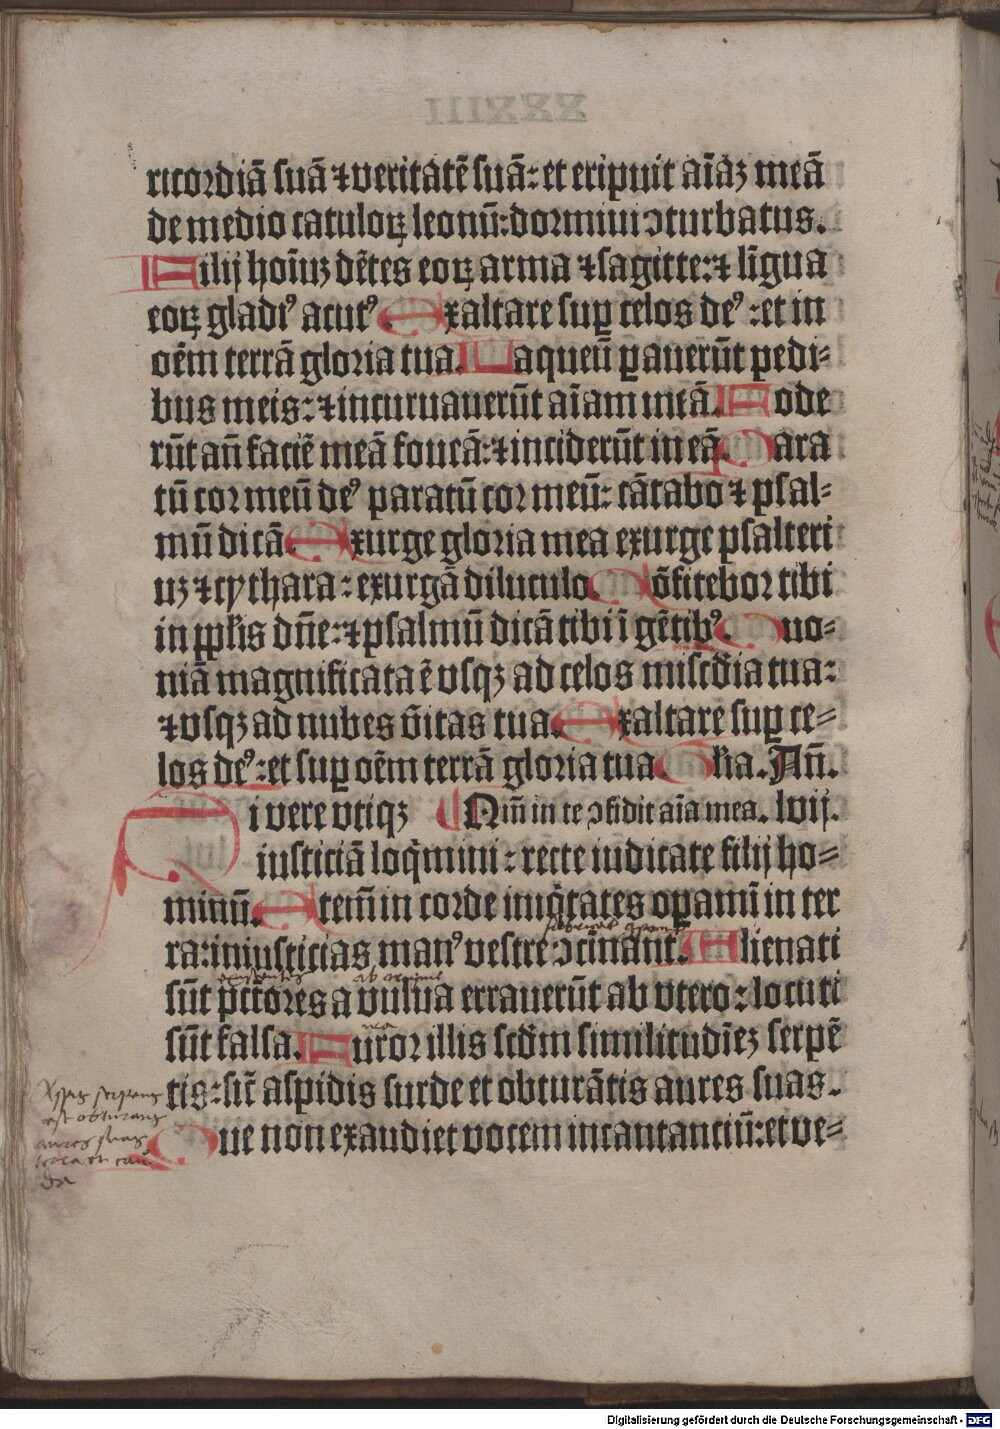 XXXIII
ricordiā suā ⁊ veritatē suā: et eripuit aīaꝫ meā
de medio catuloꝝ leonū: dormiui ꝯturbatus.
Filij hoīuꝫ dētes eoꝝ arma ⁊ sagitte: ⁊ līgua
eoꝝ gladiꝰ acutꝰ. Exaltare suꝑ celos deꝰ: et in
oēm terrā gloria tua. Laqueū ꝑauerūt pedi⸗
bus meis: ⁊ incuruauerūt aīam meā. Fode
rūt an̄ faciē meā foueā: ⁊ inciderūt in eā. Para
tū cor meū deꝰ paratū cor meū: cātabo ⁊ psal⸗
mū dicā. Exurge gloria mea exurge psalteri
uꝫ ⁊ cythara: exurgā diluculo. Cōfitebor tibi
in pplis dn̄e: ⁊ psalmū dicā tibi ī gētibꝰ. Quo⸗
niā magnificata ē vsqꝫ ad celos mīscd̄ia tua:
⁊ vsqꝫ ad nubes v̄itas tua. Exaltare suꝑ ce⸗
los deꝰ: et suꝑ oēm terrā gloria tua. Glia. An̄.
Si vere vtiqꝫ Qm̄ in te ꝯfidit aīa mea. lvij.
iusticiā loq̄mini: recte iudicate filij ho⸗
minū. Etem̄ in corde iniq̄tates oꝑamī in ter
ra: iniusticias manꝰ vestre ꝯcīnant. Alienati
sūt pctōres a vulua errauerūt ab vtero: locuti
sūt falsa. Furor illis scd̄m similitudīeꝫ serpē
tis: sic̄ aspidis surde et obturātis aures suas.
Que non exaudiet vocem incantantiū: et ve⸗
est obturans
aures suas
Digitalisierung gefördert durch die Deutsche Forschungsgemeinschaft - DFG